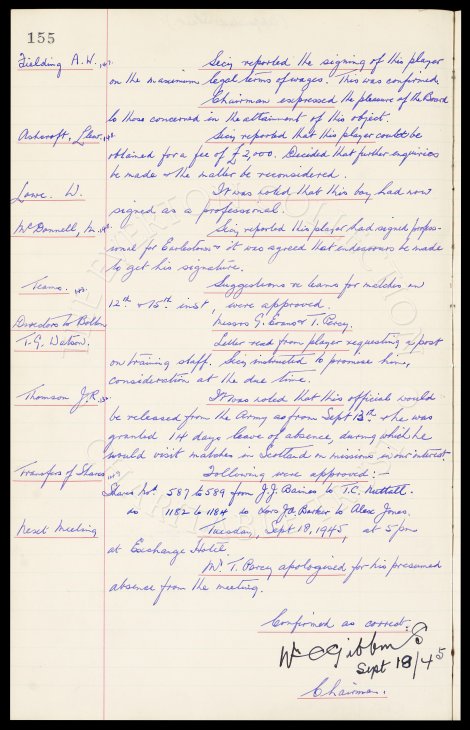 155
Fielding A.W. Secy reported the signing of this player
on the maximum legal terms of wages. This was confirmed.
Chairman expressed the pleasure of the Board
to those concerned in the attainment of this object.
Ashcroft, Secy reported that this player could be
obtained for a fee of £2,000. Decided that further enquiries
be made & the matter be reconsidered.
Lowe. W. It was noted that this boy had now
signed as a professional.
McDonnell, M. Secy reported this player had signed profes-
sional for Earlestown & it was agreed that endeavours be made
to get his signature.
Teams. Suggestions re teams for matches on
12th & 15th inst. were approved.
Directors to Bolton Messrs G. Evans & T. Percy.
T.G. Watson. Letter read from player requesting a post
on training staff. Secy instructed to promise him,
consideration at the due time.
Thomson J.R. It was noted that this official would
be released from the Army as from Sept 13th & he was
granted 14 days leave of absence, during which he
would visit matches in Scotland on missions in our interest
Transfers of Shares Following were approved:-
Shares Nos. 587 to 589 from J.J. Baines to T.C. Nuttall.
do 1182 to 1184 to Alex Jones.
Next Meeting Tuesday, Sept 18, 1945, at 5pm
at Exchange Hotel.
Mr. T. Percy apologised for his presumed
absence from the meeting.
Confirmed as correct:
Wm C Gibbins
Sept 18/45
Chairman.